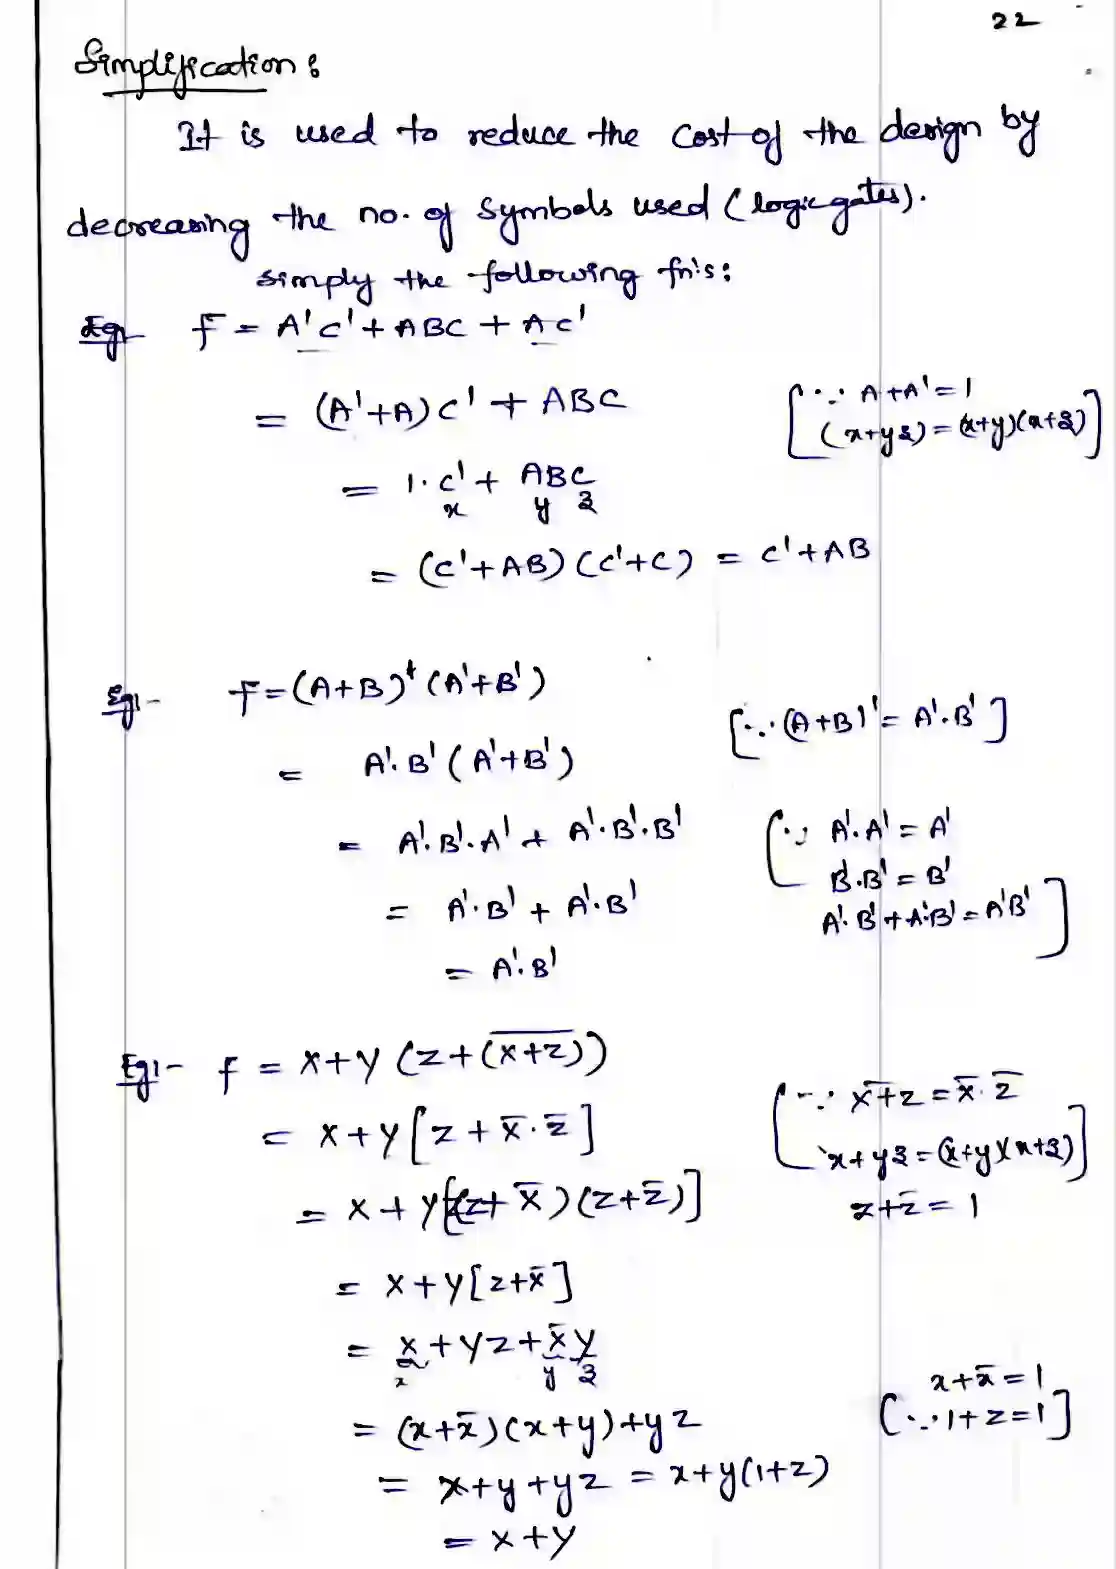 22
Simplification:
It is used to reduce the cost of the design by
decreasing the no. of symbols used (logic gates).
simply the following fn's:
Eg:- f = A'C' + ABC + AC'
= (A'+A)C' + ABC [∵ A+A'=1
(x+yz) = (x+y)(x+z)]
= 1·C' + ABC
x y z
= (C'+AB)(C'+C) = C'+AB
Eg:- f=(A+B)'(A'+B')
= A'·B'(A'+B') [∵(A+B)'= A'·B']
= A'·B'·A' + A'·B'·B' [∵ A'·A' = A'
B'·B' = B'
= A'·B' + A'·B' A'·B'+A'·B' = A'B']
= A'·B'
Eg:- f = X+Y (Z+(\overline{X+Z}))
= X+Y[Z+X̅·Z̅] [∵ \overline{X+Z} = X̅·Z̅
x+yz = (x+y)(x+z)]
= X+Y[(Z+X̅)(Z+Z̅)] z+z̅ = 1
= X+Y[Z+X̅]
= X+YZ+X̅Y
x y z
= (x+x̅)(x+y)+yz x+x̅=1
[∵1+z=1]
= x+y+yz = x+y(1+z)
= X+Y